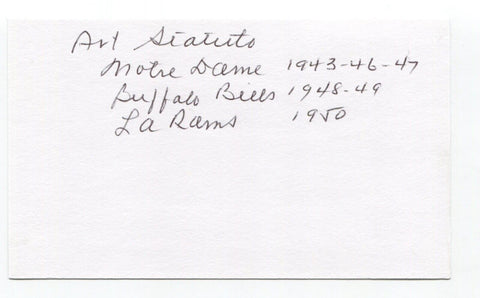 Art Statuto
Notre Dame 1943-46-47
Buffalo Bills 1948-49
LA Rams 1950